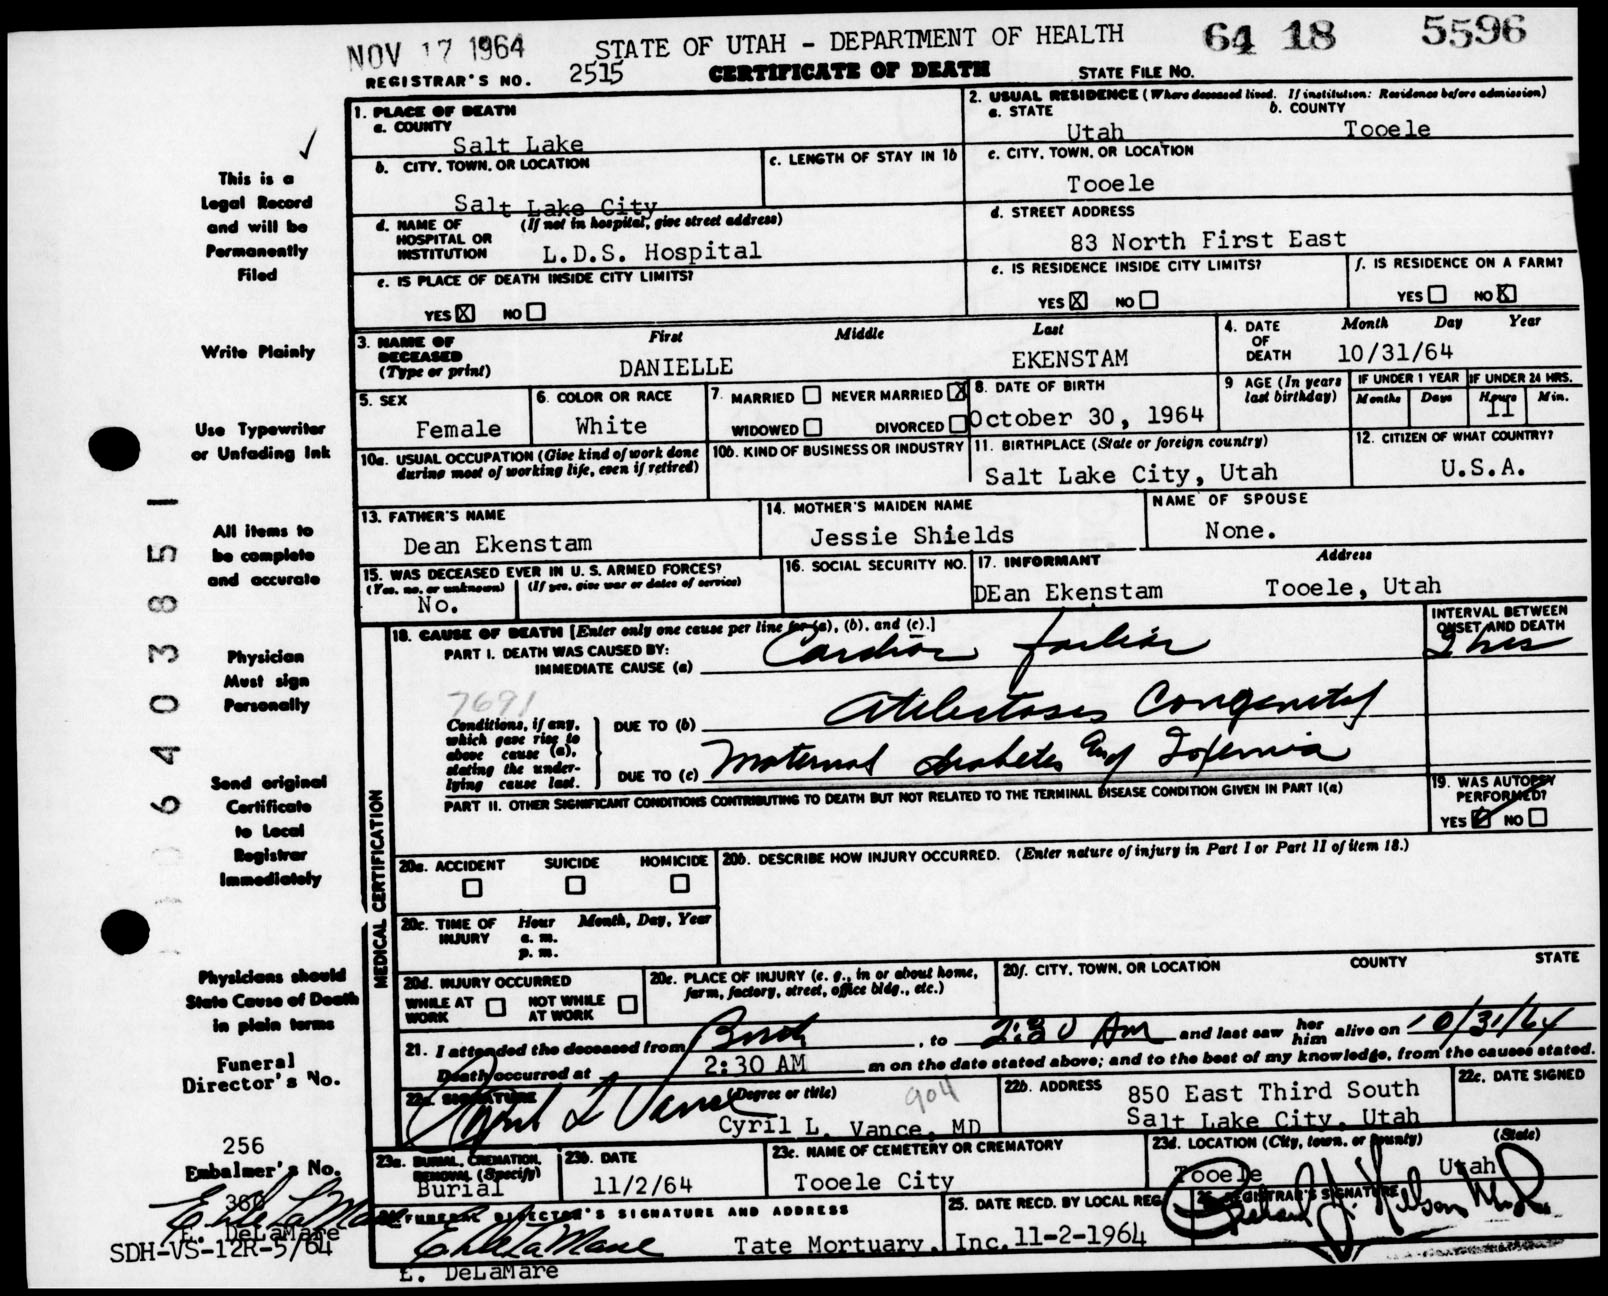 NOV 17 1964 STATE OF UTAH - DEPARTMENT OF HEALTH 64 18 5596
REGISTRAR'S NO. 2515 CERTIFICATE OF DEATH STATE FILE NO.
1. PLACE OF DEATH
a. COUNTY
Salt Lake
2. USUAL RESIDENCE (Where deceased lived. If institution: Residence before admission)
a. STATE b. COUNTY
Utah Tooele
b. CITY, TOWN, OR LOCATION
Salt Lake City
c. LENGTH OF STAY IN 1b
c. CITY, TOWN, OR LOCATION
Tooele
d. NAME OF (If not in hospital, give street address)
HOSPITAL OR
INSTITUTION L.D.S. Hospital
d. STREET ADDRESS
83 North First East
e. IS PLACE OF DEATH INSIDE CITY LIMITS?
YES X NO
e. IS RESIDENCE INSIDE CITY LIMITS?
YES X NO
f. IS RESIDENCE ON A FARM?
YES NO X
3. NAME OF First Middle Last
DECEASED
(Type or print) DANIELLE EKENSTAM
4. DATE Month Day Year
OF
DEATH 10/31/64
5. SEX
Female
6. COLOR OR RACE
White
7. MARRIED NEVER MARRIED X
WIDOWED DIVORCED
8. DATE OF BIRTH
October 30, 1964
9 AGE (In years
last birthday)
IF UNDER 1 YEAR IF UNDER 24 HRS.
Months Days Hours Min.
11
10a. USUAL OCCUPATION (Give kind of work done
during most of working life, even if retired)
10b. KIND OF BUSINESS OR INDUSTRY
11. BIRTHPLACE (State or foreign country)
Salt Lake City, Utah
12. CITIZEN OF WHAT COUNTRY?
U.S.A.
13. FATHER'S NAME
Dean Ekenstam
14. MOTHER'S MAIDEN NAME
Jessie Shields
NAME OF SPOUSE
None.
15. WAS DECEASED EVER IN U. S. ARMED FORCES?
(Yes, no, or unknown) (If yes, give war or dates of service)
No.
16. SOCIAL SECURITY NO.
17. INFORMANT Address
DEan Ekenstam Tooele, Utah
18. CAUSE OF DEATH [Enter only one cause per line for (a), (b), and (c).]
PART I. DEATH WAS CAUSED BY:
IMMEDIATE CAUSE (a) Cardiac failure
INTERVAL BETWEEN
ONSET AND DEATH
2 hrs
7691
Conditions, if any,
which gave rise to
above cause (a),
stating the under-
lying cause last.
DUE TO (b) Atelectasis Congenital
DUE TO (c) Maternal diabetes and Toxemia
PART II. OTHER SIGNIFICANT CONDITIONS CONTRIBUTING TO DEATH BUT NOT RELATED TO THE TERMINAL DISEASE CONDITION GIVEN IN PART I(a)
19. WAS AUTOPSY
PERFORMED?
YES NO
20a. ACCIDENT SUICIDE HOMICIDE
20b. DESCRIBE HOW INJURY OCCURRED. (Enter nature of injury in Part I or Part II of item 18.)
20c. TIME OF Hour Month, Day, Year
INJURY a. m.
p. m.
20d. INJURY OCCURRED
WHILE AT NOT WHILE
WORK AT WORK
20e. PLACE OF INJURY (e. g., in or about home,
farm, factory, street, office bldg., etc.)
20f. CITY, TOWN, OR LOCATION COUNTY STATE
21. I attended the deceased from Birth, to 2:30 Am and last saw her him alive on 10/31/64
Death occurred at 2:30 AM m on the date stated above; and to the best of my knowledge, from the causes stated.
22a. SIGNATURE (Degree or title)
Cyril L Vance 904
Cyril L. Vance, MD
22b. ADDRESS 850 East Third South
Salt Lake City, Utah
22c. DATE SIGNED
23a. BURIAL, CREMATION,
REMOVAL (Specify)
Burial
23b. DATE
11/2/64
23c. NAME OF CEMETERY OR CREMATORY
Tooele City
23d. LOCATION (City, town, or county) (State)
Tooele Utah
24. FUNERAL DIRECTOR'S SIGNATURE AND ADDRESS
E. DeLaMare Tate Mortuary, Inc.
E. DeLaMare
25. DATE RECD. BY LOCAL REG.
11-2-1964
26. REGISTRAR'S SIGNATURE
MEDICAL CERTIFICATION
This is a
Legal Record
and will be
Permanently
Filed
Write Plainly
Use Typewriter
or Unfading Ink
All items to
be complete
and accurate
Physician
Must sign
Personally
Send original
Certificate
to Local
Registrar
Immediately
Physicians should
State Cause of Death
in plain terms
Funeral
Director's No.
256
Embalmer's No.
E. DeLaMare
SDH-VS-12R-5/64
6403851